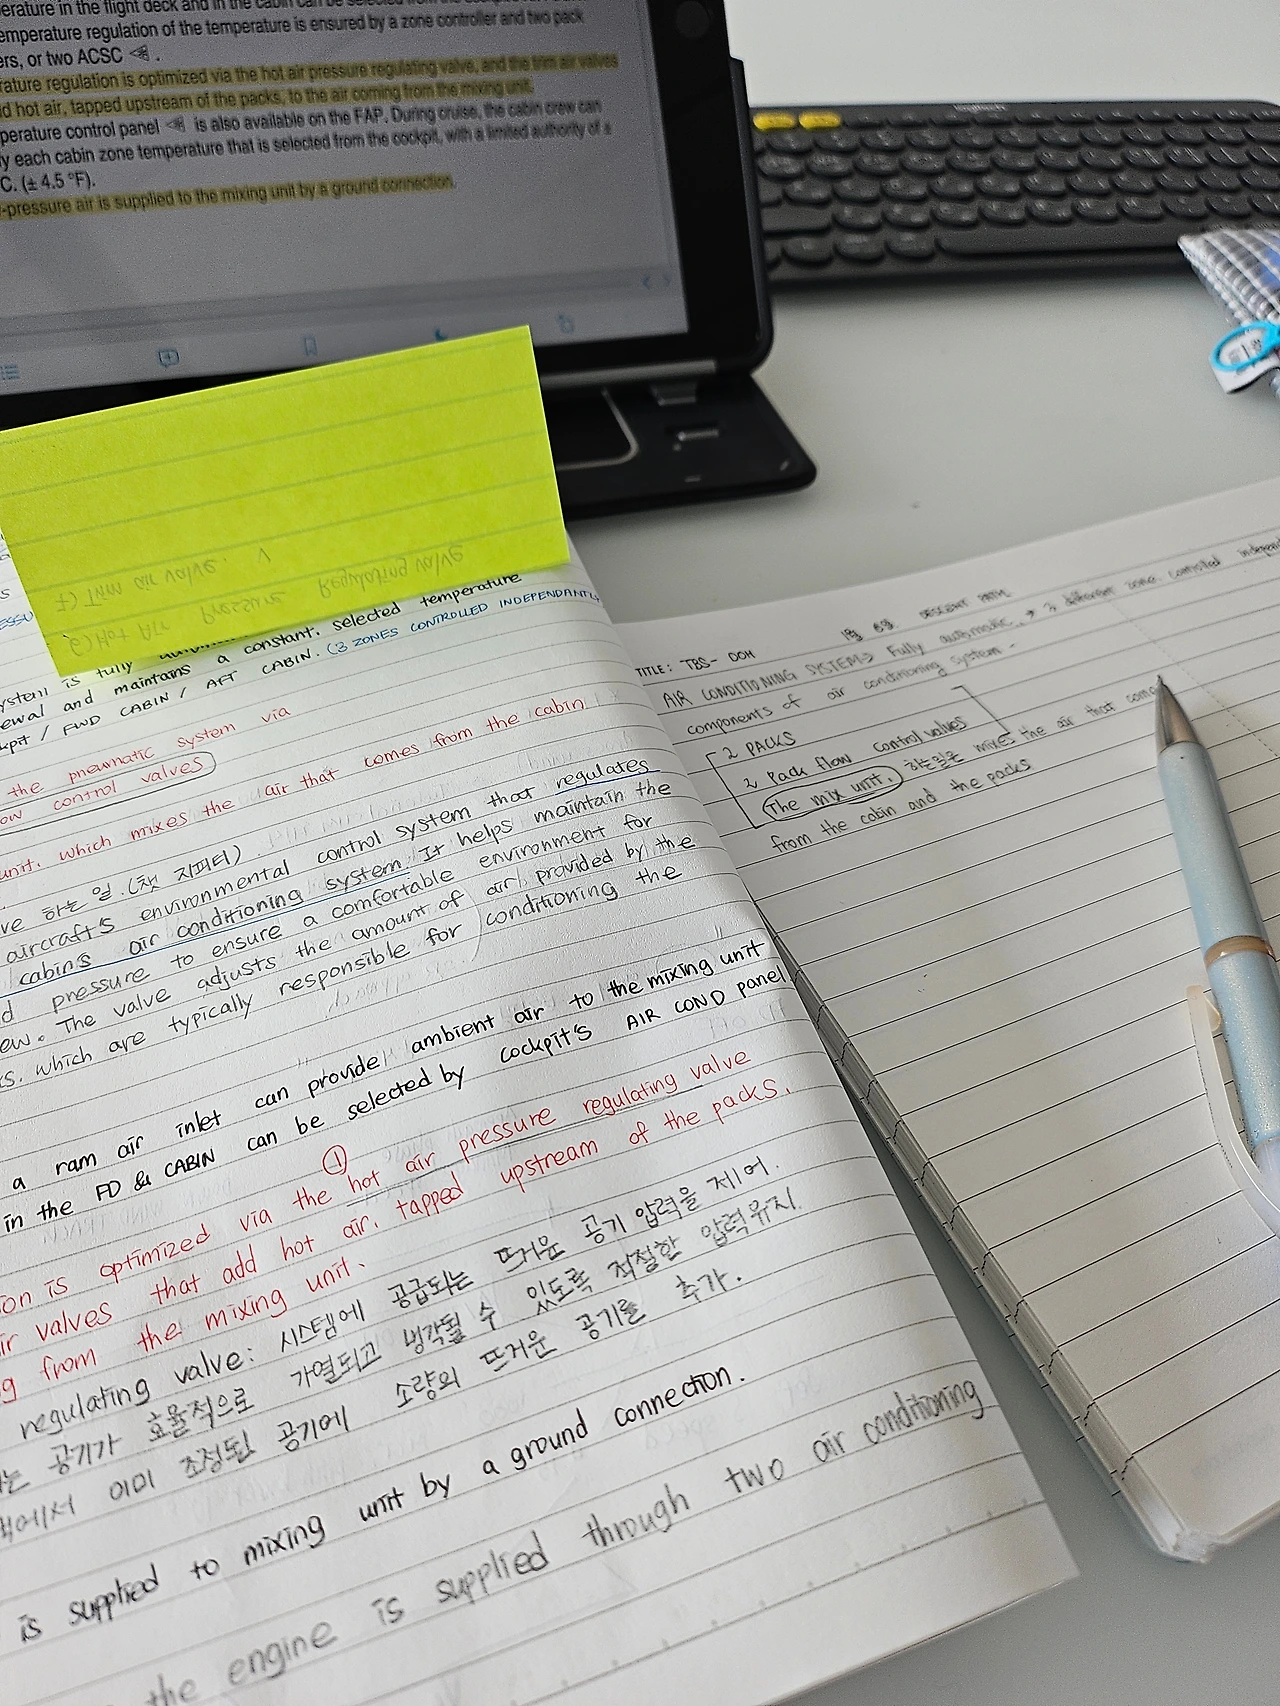 erature in the flight deck and in the cabin can be selected from the
emperature regulation of the temperature is ensured by a zone controller and two pack
ers, or two ACSC
rature regulation is optimized via the hot air pressure regulating valve, and the trim air valves
d hot air, tapped upstream of the packs, to the air coming from the mixing unit.
perature control panel is also available on the FAP. During cruise, the cabin crew can
y each cabin zone temperature that is selected from the cockpit, with a limited authority of ±
C. (± 4.5 °F).
-pressure air is supplied to the mixing unit by a ground connection.
logitech
Trim air valve.
Hot Air Pressure Regulating valve
ystem is fully
ewal and maintains a constant, selected temperature
kpit / FWD CABIN / AFT CABIN. (3 ZONES CONTROLLED INDEPENDANTLY
the pneumatic system via
ow control valves
unit, which mixes the air that comes from the cabin
ve 하는 일.(챗 지피티)
aircraft's environmental control system that regulates
cabin's air conditioning system. It helps maintain the
d pressure to ensure a comfortable environment for
ew. The valve adjusts the amount of air provided by the
s, which are typically responsible for conditioning the
a ram air inlet can provide ambient air to the mixing unit
in the FD & CABIN can be selected by cockpit's AIR COND panel
①
on is optimized via the hot air pressure regulating valve
ir valves that add hot air, tapped upstream of the packs.
g from the mixing unit.
regulating valve: 시스템에 공급되는 뜨거운 공기 압력을 제어.
는 공기가 효율적으로 가열되고 냉각될 수 있도록 적절한 압력유지.
에서 이미 조정된 공기에 소량의 뜨거운 공기를 추가.
is supplied to mixing unit by a ground connection.
the engine is supplied through two air conditioning
1월 6일. DESCENT PATH
TITLE: TBS- DOH
AIR CONDITIONING SYSTEM→ Fully automatic. → 3 different zone. controlled independ
components of air conditioning system -
2 PACKS
2 Pack flow control valves
The mix unit. 하는일은 mixes the air that come
from the cabin and the packs